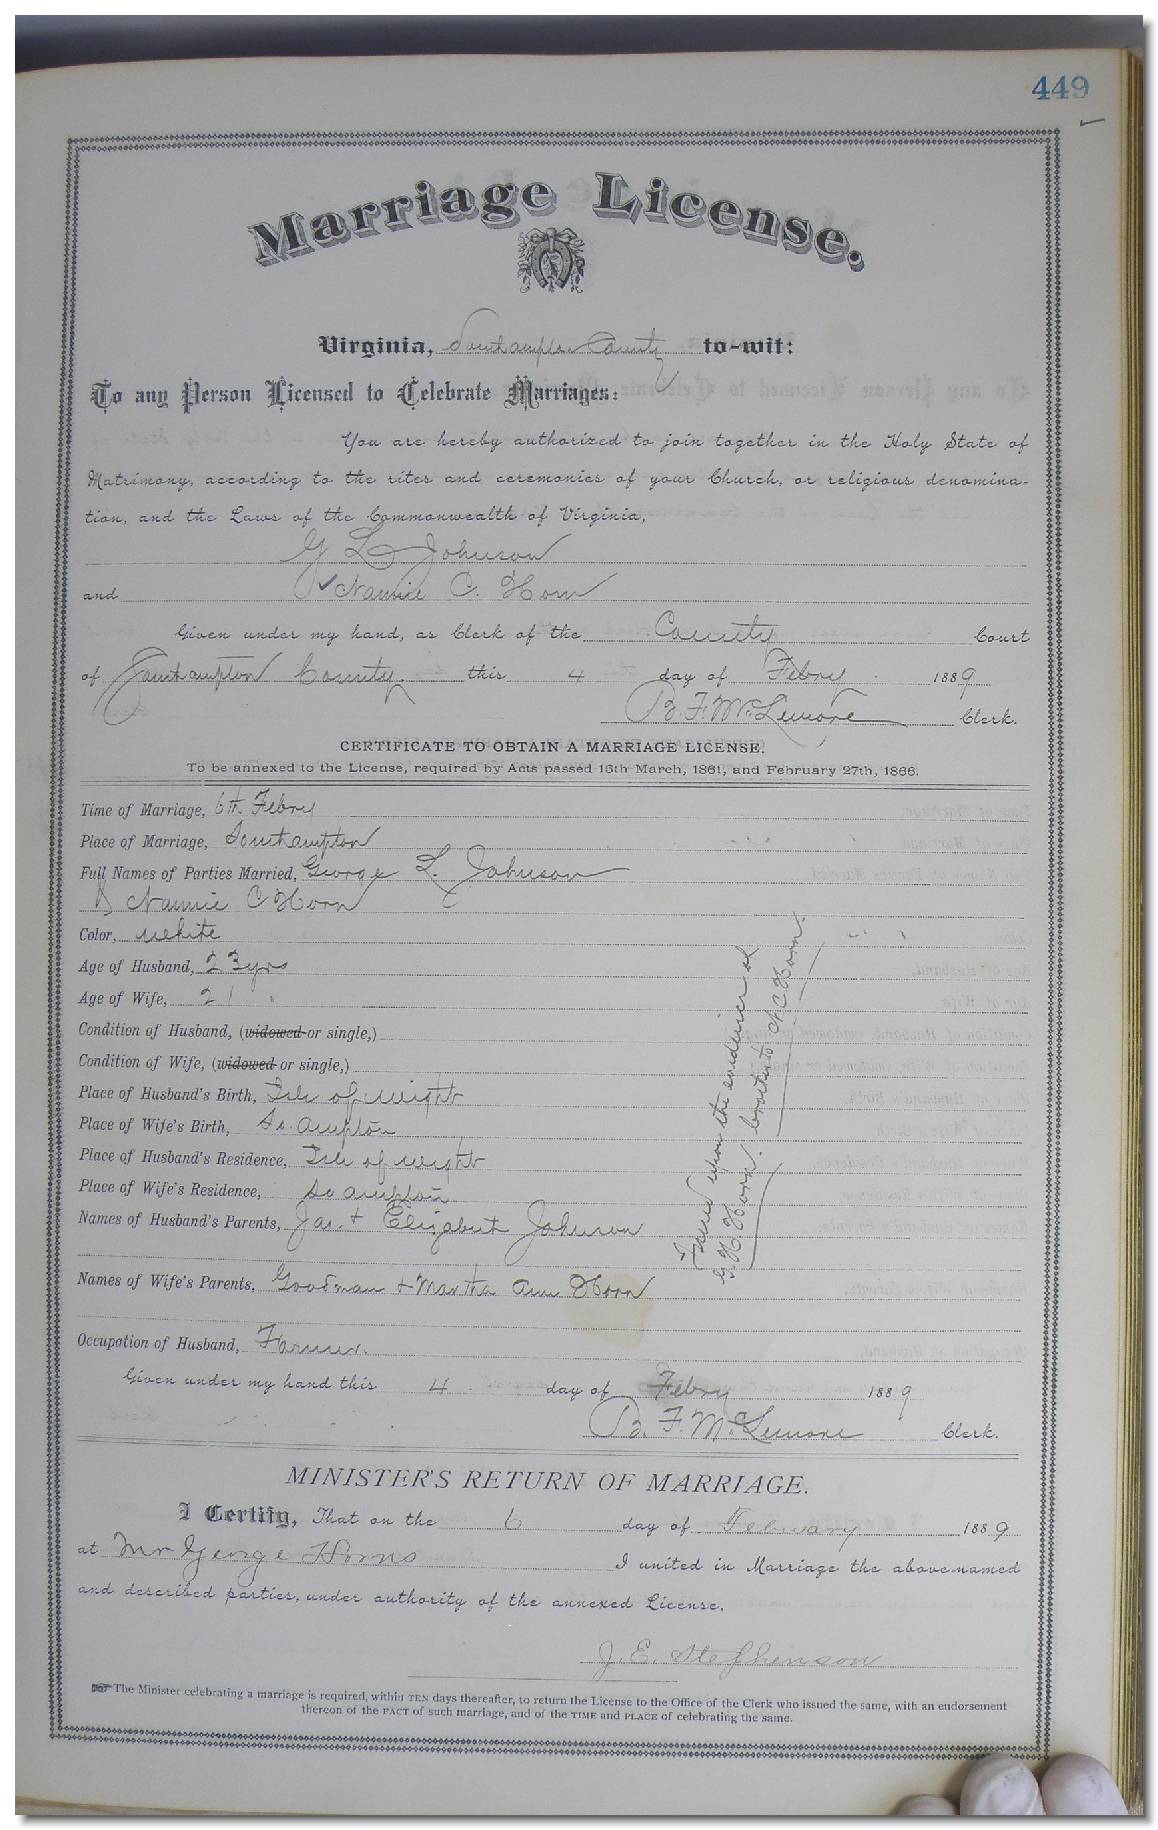 449
Marriage License.
Virginia, Southampton County to-wit:
To any Person Licensed to Celebrate Marriages:
You are hereby authorized to join together in the Holy State of
Matrimony, according to the rites and ceremonies of your Church, or religious denomina-
tion, and the Laws of the Commonwealth of Virginia,
G L Johnson
and Nannie C. Horn
Given under my hand, as Clerk of the County Court
of Southampton County this 4 day of Febry 1889
B. F. McLemore Clerk.
CERTIFICATE TO OBTAIN A MARRIAGE LICENSE.
To be annexed to the License, required by Acts passed 15th March, 1861, and February 27th, 1866.
Time of Marriage, 6th Febry
Place of Marriage, Southampton
Full Names of Parties Married, George L. Johnson
& Nannie C Horn
Color, White
Age of Husband, 23 yrs
Age of Wife, 21 "
Condition of Husband, (widowed or single,)
Condition of Wife, (widowed or single,)
Place of Husband's Birth, Isle of Wight
Place of Wife's Birth, So. ampton
Place of Husband's Residence, Isle of Wight
Place of Wife's Residence, So ampton
Names of Husband's Parents, Jas. + Elizabeth Johnson
Names of Wife's Parents, Goodman + Martha Ann Horn
Occupation of Husband, Farmer.
Issued upon the evidence of
G. H. Horn, brother to N. C. Horn.
Given under my hand this 4 day of Febry 1889
B. F. McLemore Clerk.
MINISTER'S RETURN OF MARRIAGE.
I Certify, That on the 6 day of February 1889
at Mr George Horns I united in Marriage the above-named
and described parties, under authority of the annexed License.
J. E. Stephenson
The Minister celebrating a marriage is required, within TEN days thereafter, to return the License to the Office of the Clerk who issued the same, with an endorsement
thereon of the FACT of such marriage, and of the TIME and PLACE of celebrating the same.